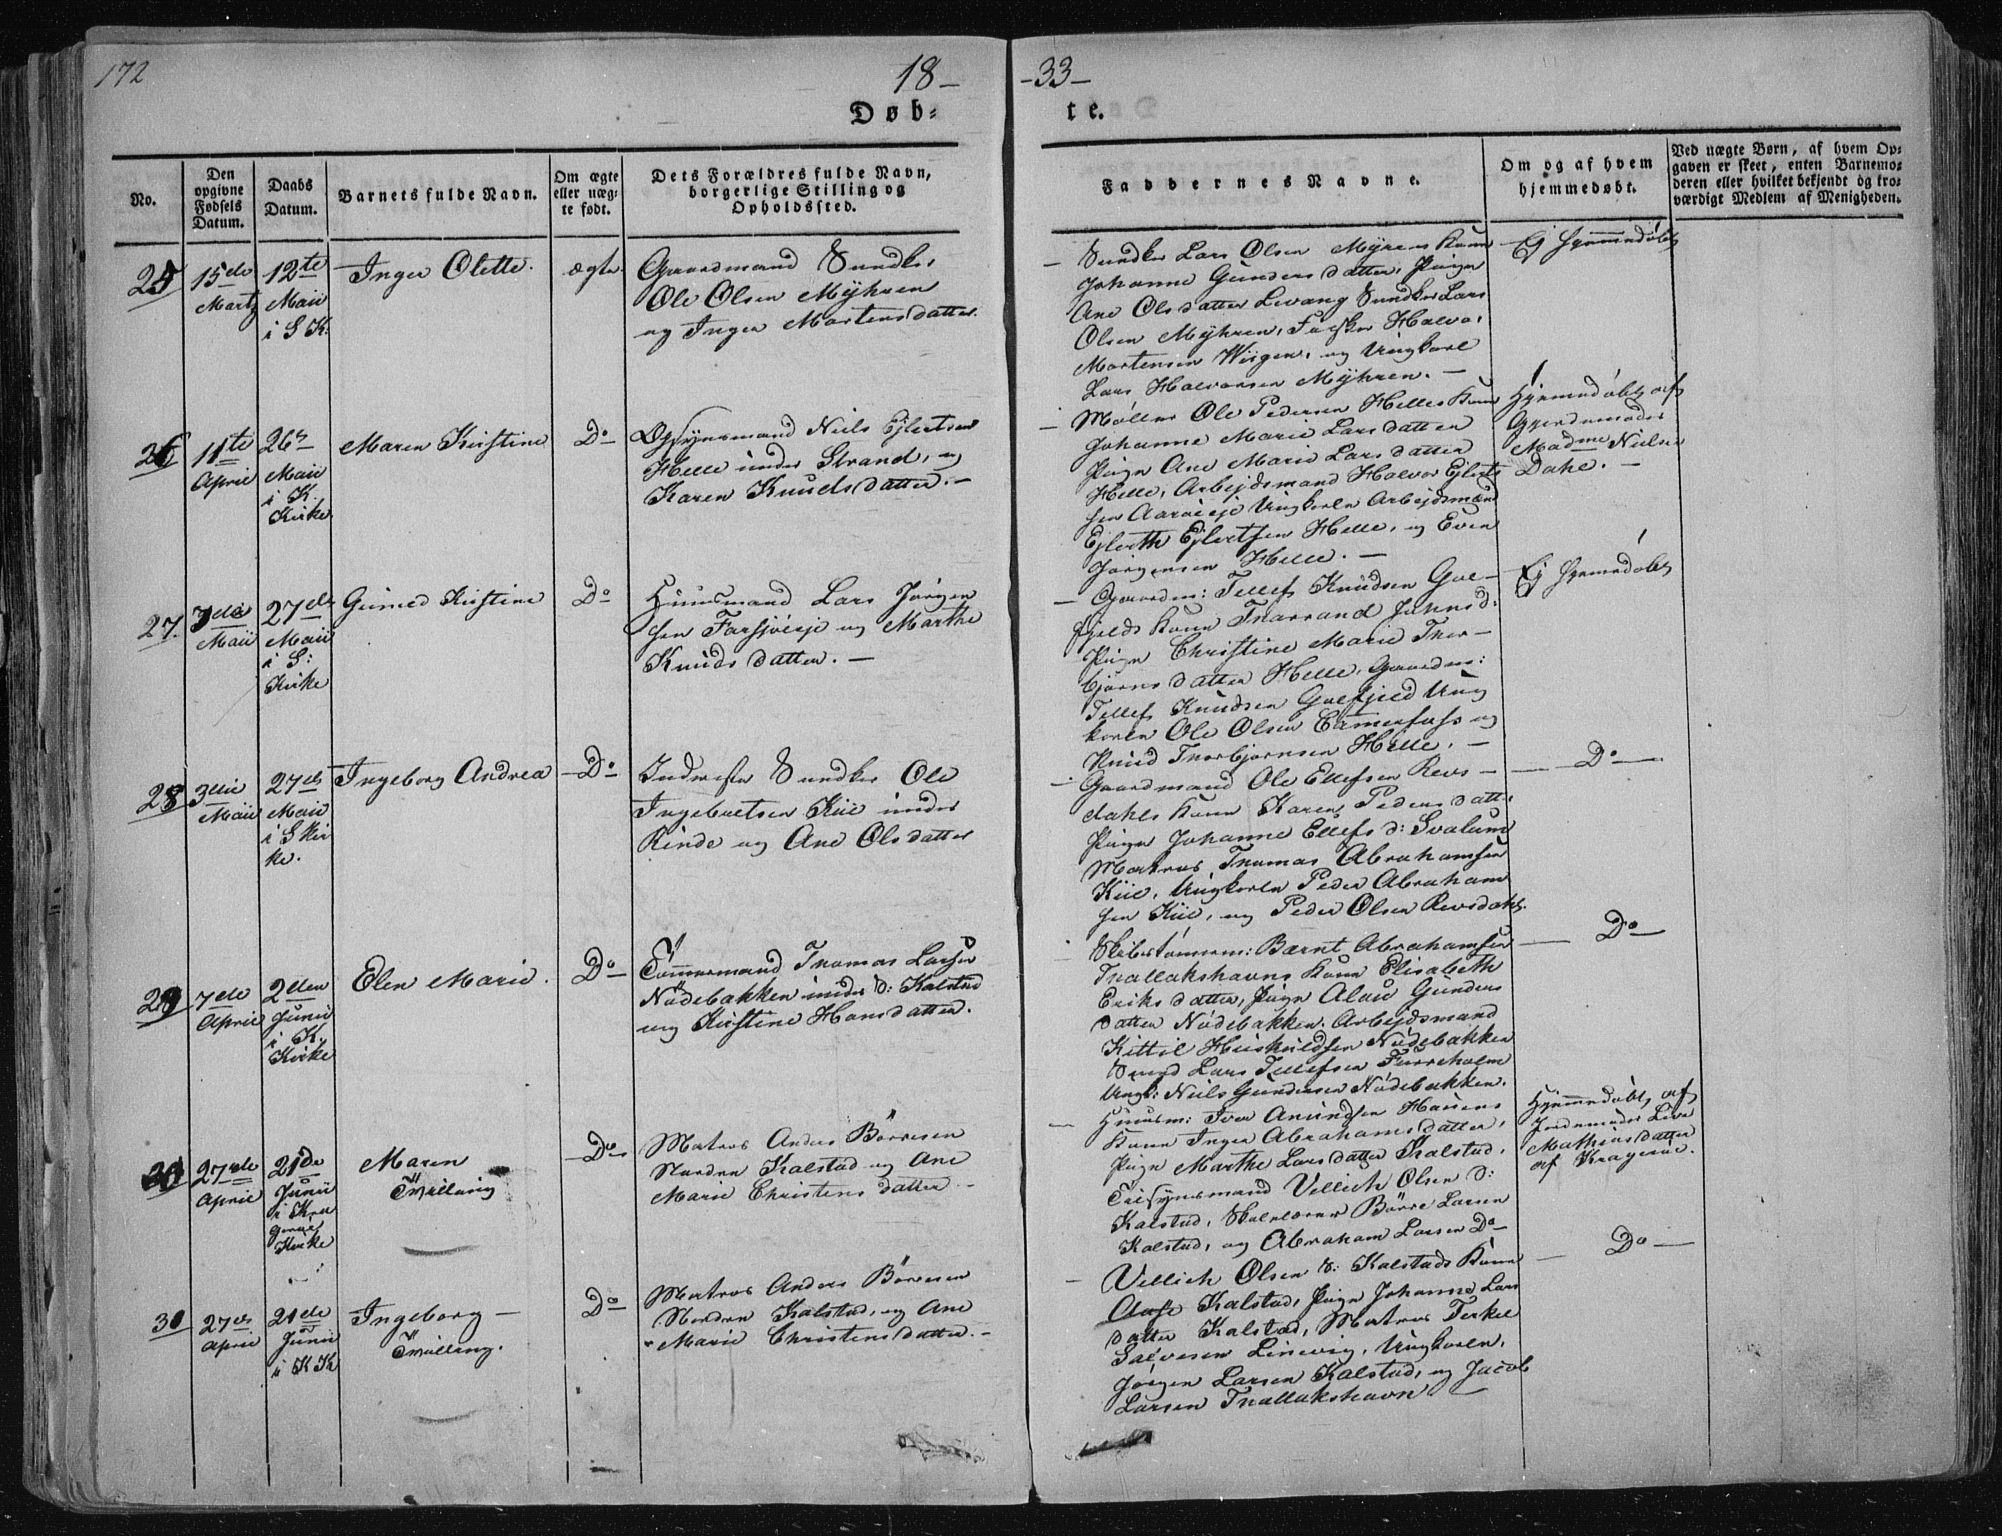 172
18-
-33-
Døb-
te.
No.
Den opgivne Fødsels Datum.
Daabs Datum.
Barnets fulde Navn.
Om ægte eller uægte født.
Dets Forældres fulde Navn, borgerlige Stilling og Opholdssted.
Faddernes Navne.
Om og af hvem hjemmedøbt.
Ved uægte Børn, af hvem Opgaven er skeet, enten Barnemoderen eller hvilket bekjendt og troværdigt Medlem af Menigheden.
25
15de
Martz
12te
Maii
i S K:
Inger Olette.
ægte
Gaardmand
Ole Olsen Myhren
og Inger Mortensdatter.
Lars Olsen Myrens Kone
Johanne Gundersdatter, Pige
Ane Olsdatter Levang Lars
Olsen Myhren, Halvo,
Mortensen Wiigen, og Ungkarl
Lars Halvorsen Myhren. -
Ej hjemmedøbt
26
11te
April
26
Maii
i K.
Kirke
Maren Kirstine
Do
Opsynsmand Niels Ejlertsen
Helle under Strand, og
Karen Knudsdatter. -
Møller Ole Pedersen Helles Kone
Johanne Marie Larsdatter
Pige Ane Marie Larsdatter
Helle, Arbejdsmand Halvor Ejlert-
sen Aarøeje Ungkarle Arbejdsmænd
Ejlerth Ejlertsen Helle, og Even
Jørgensen Helle. -
Hjemmedøbt af
Gjordemoder
Madme Nielse
Dahl. -
27.
3die
Maii
27de
Maii
i S:
Kirke
Gunild Kirstine
Do
Huusmand Lars Jørgen-
sen Farsjøeje og Marthe
Knudsdatter. -
- Gaardm: Tellef Knudsen Gal-
fjelds Kone Johnsd:
Pige Christine Marie Thor-
bjørnsdatter Helle, Gaardm:
Tellef Knudsen Galfjeld Ung
karle Ole Olsen og
Knud Thorbjørnsen Helle. -
Ej hjemmedøbt
28
3die
Maii
27de
Maii
i S Kir
ke.
Ingeborg Andrea
Do
Inderst Ole
Ingebretsen Kiil under
Rinde og Ane Olsdatter
Gaardmand Ole Ellefsen Revs-
dahls Kone Karen Pedersdatt:
Pige Johanne Ellefsd: Svalund
Matros Thomas Abrahamsen
Kiil, Ungkarle Peder Abraham
sen Kiil, og Peder Olsen Revsdahl.
Do
29
7de
April
2den
Junii
i K.
Kirke
Elen Marie.
Do
Tømmermand Thomas Larsen
Nødebakken under d: Kalstad
og Kirstine Hansdatter.
Skibstømmerm: Bærnt Abrahamsen
Thallakshavns Kone Elisabeth
Eriksdatter, Pige Gunders
datter Nødebakken, Arbejdsmand
Kittil Nødebakken
Lars Tellefsen Furreholm
Ungk: Niels Gundersen Nødebakken.
Do
30
27de
April
21de
Junii
i Kra
gerøe
Kirke
Maren
Tvilling
Do
Matros Anders Børresen
Nordre Kalstad og Ane
Marie Christensdatter -
Huusm: Iver Anundsen Hauens
Kone Inger Abrahamsdatter,
Pige Marthe Larsdatter Kalstad,
Tilsynsmand Vellich Olsen d:
Kalstad, Skolelærer Børre Larsen
Kalstad, og Abraham Larsen Do
Hjemmedøbt af
Jordemoder Live
Mathiasdatter
af Kragerøe.
31
27de
April
21de
Junii
i K K
Ingeborg -
Tvilling.
Do
Matros Anders Børresen
Nordre Kalstad, og Ane
Marie Christensdatter. -
Vellich Olsen d: Kalstads Kone
Aase Kalstad, Pige Johanne Lars
datter Kalstad, Matros Terkel
Salvesen Linevig, Ungkarle,
Jørgen Larsen Kalstad, og Jacob
Larsen Thallakshavn
Do